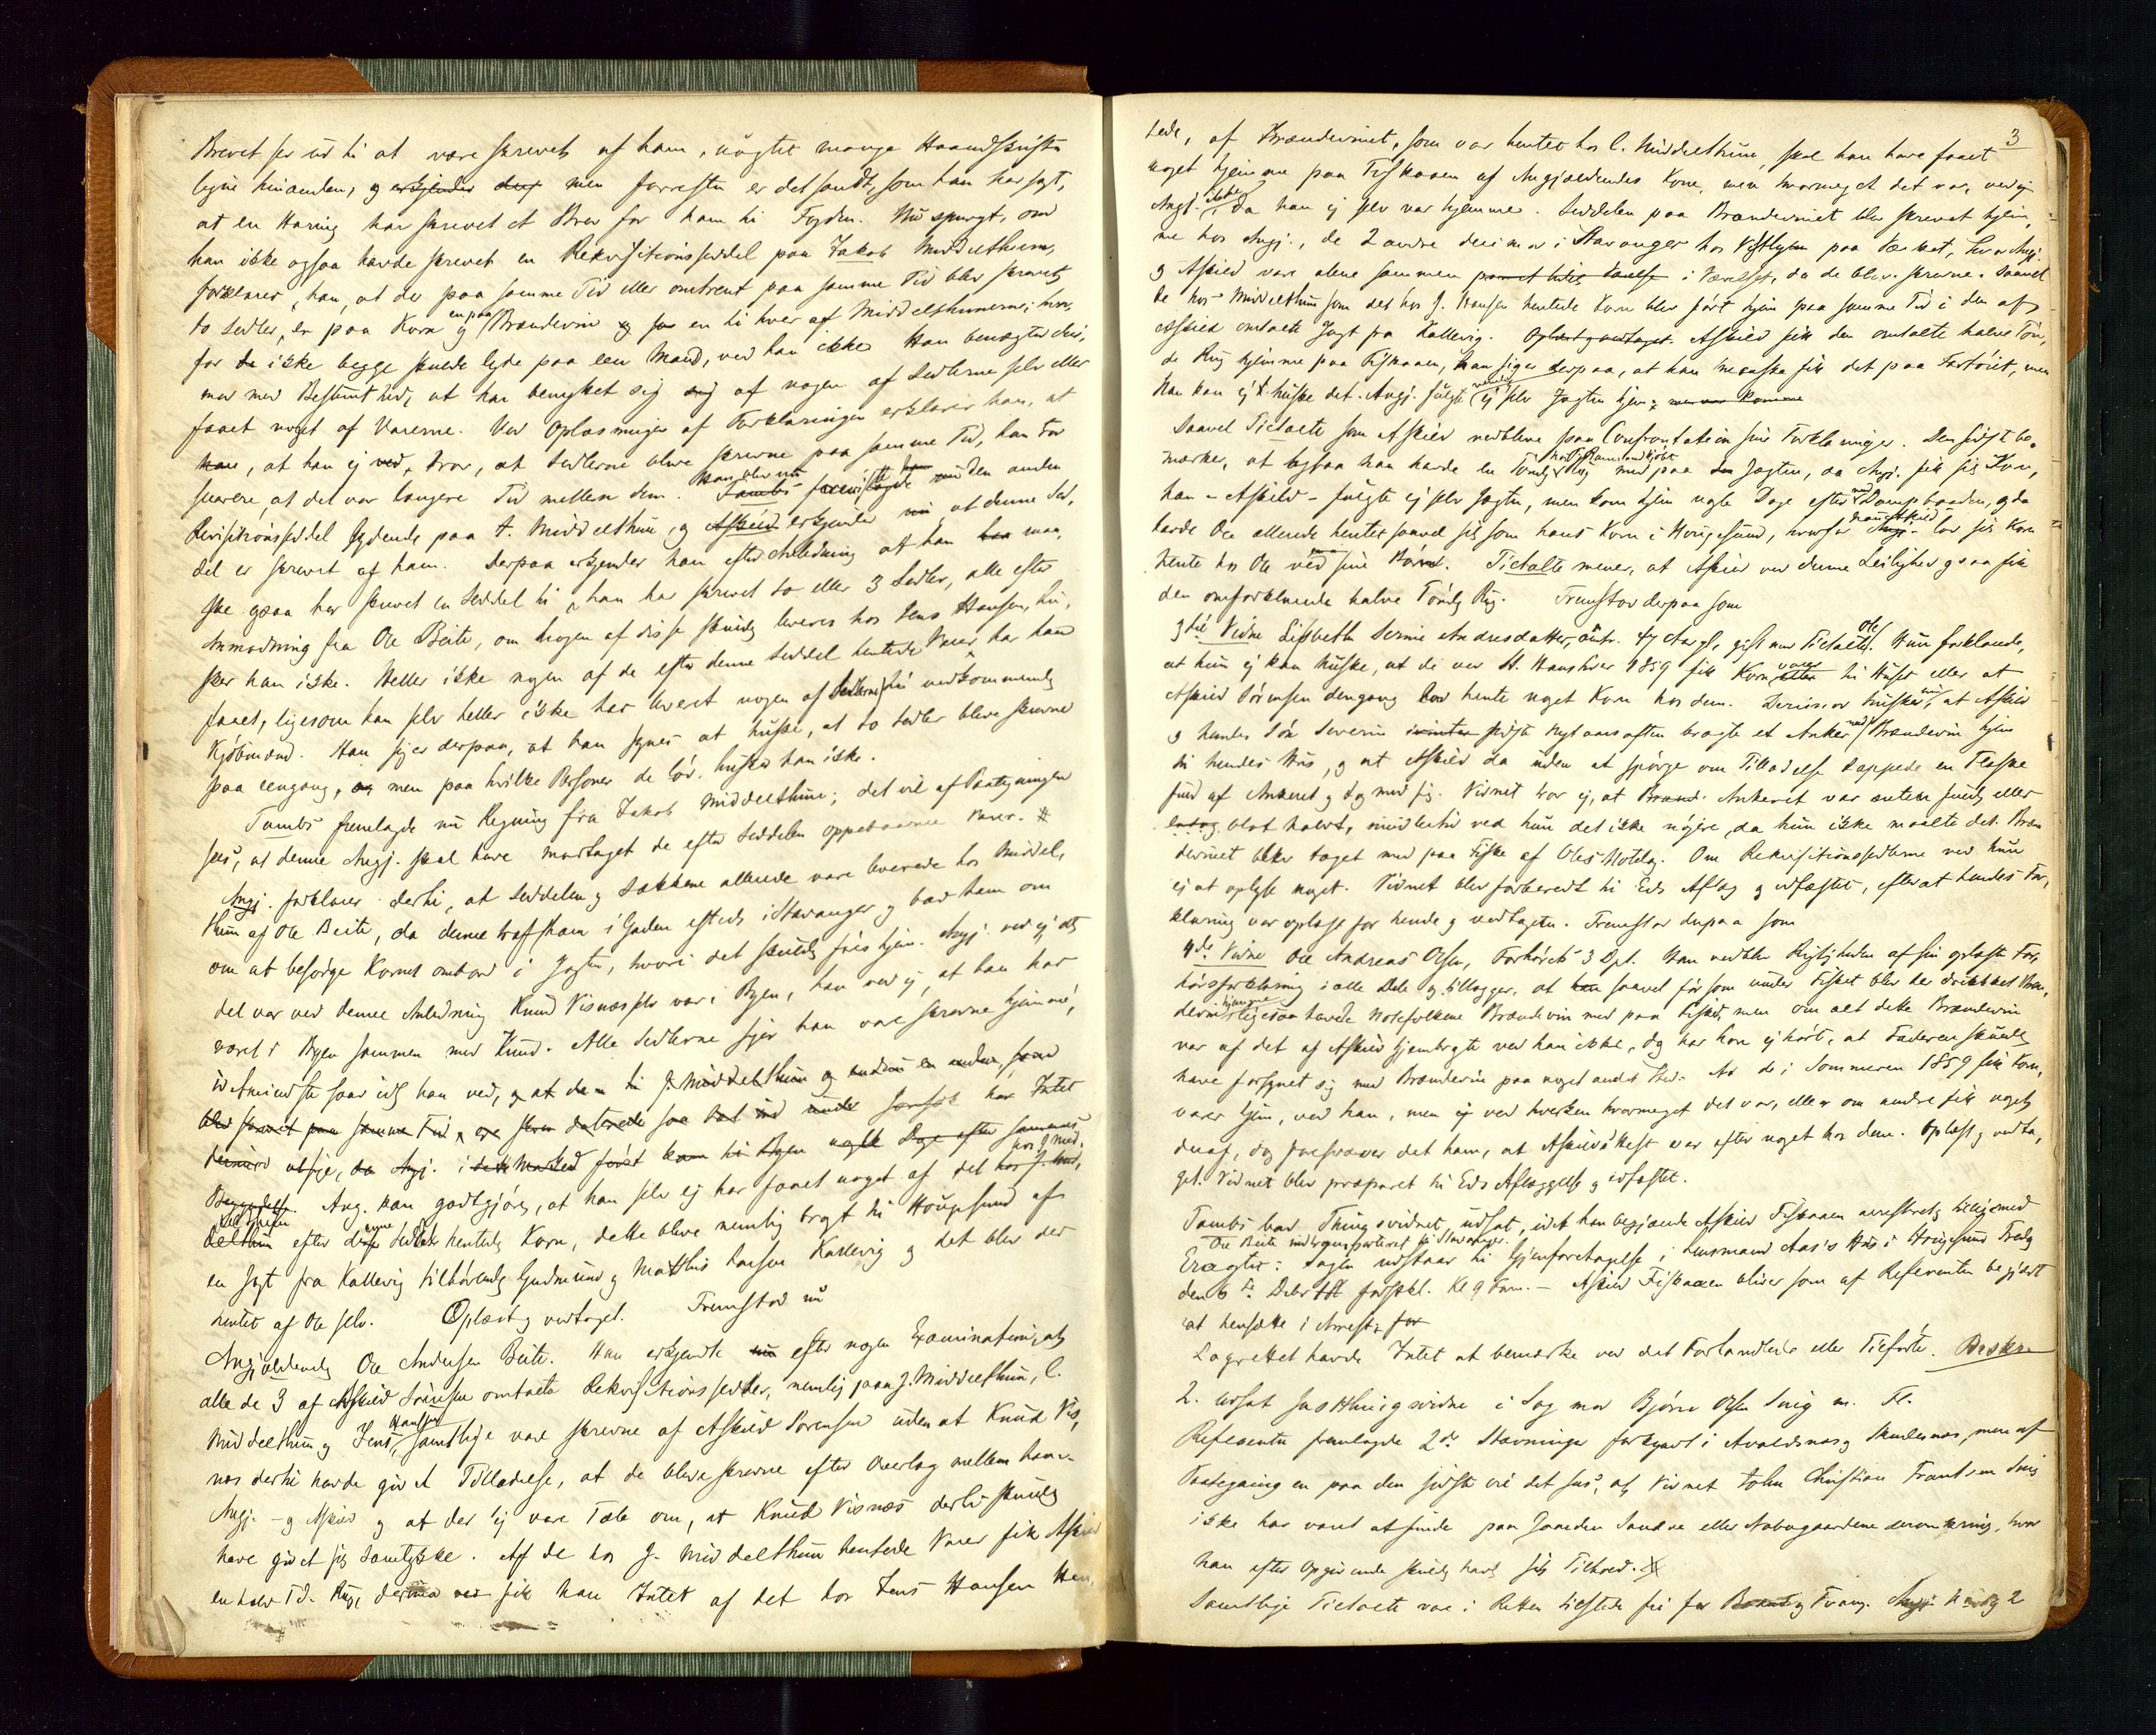 Brevet ser ud til at være skrevet af ham, uagtet mange Haandskrifter
ligne hinanden, og erkjender derf men forresten er det sandt, som han har sagt,
at en Haring har skrevet et Brev for ham til Fogden. Nu spurgt, om
han ikke ogsaa havde skrevet en Rekvisitionsseddel paa Jakob Middelthun,
forklarer han, at der paa samme Tid eller omtrent paa samme Tid blev skrevet
to Sedler, en paa Korn og en paa Brændeviin og saa en til hver af Middelthunerne; hvor-
for de ikke begge skulde lyde paa een Mand, ved han ikke. Han benægter der-
mod med Bestemthed, at han benyttet sig af nogen af Sedlerne selv eller
faaet noget af Varerne. Ved Oplæsningen af Forklaringen erklærer han, at
han, at han ej ved, tror, at Sedlerne bleve skrevne paa samme Tid, han tror
snarere, at det var længere Tid mellem dem. Tambs den anden
Rekvisitionsseddel lydende paa J. Middelthun, og Askild erkjender nu at denne Sed-
del er skrevet af ham. Derpaa erkjender han efter Anledning at han maa-
ske ogsaa har skrevet en Seddel til, han har skrevet to eller 3 Sedler, alle efter
Anmodning fra Ole Beite, om nogen af disse skulde leveres hos Jens Hansen, hu-
sker han ikke. Heller ikke nogen af de efter denne Seddel hentede Varer har han
faaet, ligesom han selv heller ikke har leveret nogen af Sedlerne til vedkommende
Kjøbmænd. Han siger derpaa, at han synes at huske, at to Sedler bleve skrevne
paa eengang, og men paa hvilke Personer de lød, husker han ikke.
Tambs fremlagde nu Regning fra Jakob Middelthun; det vil af Paategningen
sees, at denne Angj. skal have modtaget de efter Seddelen oppebaarne Varer. #
Angj. forklarer dertil, at Seddelen og Sækkene allerede vare leverede hos Middel-
thun af Ole Beite, da denne traf ham i Gaden efteds i Stavanger og bad ham om
om at besørge Kornet ombord i Jagten, hvori det skulde føres hjem. Angj. ved ej at
det var ved denne Anledning Knud Visnæs selv var i Byen, han ved ej, at han har
været i Byen sammen med Knud. Alle Sedlerne siger han vare skrevne hjemme,
idetmindste saavidt han ved, og at den til J. Middelthun og endnu en anden
blev skrevet paa samme Tid
Angj. kan godtgjøre, at han selv ej har faaet noget af det hos J. Mid-
delthun efter denne Seddel hentede Korn, dette bleve nemlig bragt til Haugesund af
en Jagt fra Kallevig tilhørende Gudmund og Matthis Larsen Kallevig og det blev der
hentet af Ole selv. Oplæst og vedtaget. Fremstod nu
Angjældende Ole Andersen Beite. Han erkjendte nu efter nogen Examination, at
alle de 3 af Askild Sørensen omtalte Rekvisitionssedler, nemlig paa J. Middelthun, C.
Middelthun og Jens Hansen, samtlige vare skrevne af Askild Sørensen uden at Knud Vis-
næs dertil havde givet Tilladelse, at de bleve skrevne efter Overlæg mellem ham -
Angj. - og Askild og at der ej vare Tale om, at Knud Visnæs dertil skulde
have givet sit Samtykke. Af de hos J. Middelthun hentede Varer fik Askild
en halv Td. Rug, derimod fik han Intet af det hos Jens Hansen hen-
3
tede, af Brændevinet, som var hentet hos C. Middelthun, skal han have faaet
noget hjemme paa Fiskaaen af Angjældendes Kone, men hvormeget det var, ved ej
Angj. Ole, da han ej selv var hjemme. Seddelen paa Brændevinet blev skrevet hjem-
me hos Angj., de 2 andre derimod i Stavanger hos Vestbyen paa Værket, hvor Angj.
og Askild vare alene sammen i Værelset, da de blev skrevne. Saavel
de hos Middelthun som det hos J. Hansen hentede Korn blev ført hjem paa samme Tid i den af
Askild omtalte Jagt fra Kallevig. Oplæst og vedtaget. Askild fik den omtalte halve Tøn-
de Rug hjemme paa Fiskaaen, han siger derpaa, at han maaske fik det paa Fartøiet, men
han kan ej huske det. Angj. fulgte ej selv Jagten hjem,
Saavel Tiltalte som Askild vedbleve paa Confrontation sine Forklaringer. Den sidste be-
mærker, at ogsaa han havde en Tønde Rug med paa Jagten, da Angj. fik sit Korn,
han - Askild - fulgte ej selv Jagten, men kom hjem nogle Dage efter med Dampbaaden, og da
havde Ole allerede hentet saavel sit som hans Korn i Haugesund, hvorfor Askild lod sit Korn
hente hos Ole ved sine Børn. Tiltalte mener, at Askild ved denne Leilighed ogsaa fik
den omforklarede halve Tønde Rug. Fremstod derpaa som
3die Vidne Lisbeth Serine Andersdatter, omtr. 47 Aar gl., gift med Tiltalte Ole. Hun forklarede,
at hun ej kan huske, at de ved St. Hanstider 1859 fik Kornvarer til Huset eller at
Askild Sørensen dengang lod hente noget Korn hos dem. Derimod husker hun, at Askild
og hendes Søn Severin sidste Nytaarsaften bragte et Anker med Brændevin hjem
til hendes Hus, og at Askild da uden at spørge om Tilladelse tappede en Flaske
fuld af Ankeret og tog med sig. Vidnet tror ej, at Ankeret var enten fuldt eller
blot halvt, imidlertid ved hun det ikke nøjere, da hun ikke maalte det. Bræn-
devinet blev taget med paa Fiske af Oles Notelag. Om Rekvisitionssedlerne ved hun
ej at oplyse noget. Vidnet blev forberedt til Eds Aflæg og edfæstet, efterat hendes For-
klaring var oplæst for hende og vedtagen. Fremstod derpaa som
4de Vidne Ole Andreas Olsen, Forhørets 3 Dpt. Han vedblev Rigtigheden af sin oplæste For-
hørsforklaring i alle Dele og tillægger, at saavel før som under Fisket blev der drukket Bræn-
devin hjemme, ligesaa havde Notefolkene Brændevin med paa Fisket, men om alt dette Brændevin
var af det af Askild hjembragte ved han ikke, dog har han ej hørt, at Faderen skulde
have forsynet sig med Brændevin paa noget andet Sted. At de i Sommeren 1859 fik Korn-
varer hjem, ved han, men ej ved hverken hvormeget det var, eller om andre fik noget
deraf, dog foresvæver det ham, at Askild Skest var efter noget hos dem. Oplæst og vedta-
get. Vidnet blev præpareret til Eds Aflæggelse og edfæstet.
Tambs bad Thingsvidnet udsat, idet han begjærede Askild Fiskaaen arresteret, tilligemed
Ole Beite
Eragtet: Sagen udstaar til Gjenforetagelse i Lensmand Aas's Hus i Haugesund Fredag
den 6te Decbr førstkl. Kl. 9 Form. - Askild Fiskaaen bliver som af Referenten begjært
at hensætte i Arrest.
Lagrettet havde Intet at bemærke ved det Forhandlede eller Tilførte. Beskr.
2. Udsat Justitsthingsvidne i Sag mod Bjørn Olsen Snig m. Fl.
Referenten fremlagde 2de Stævninger forkyndt i Avaldsnæs og Skudesnæs, men af
Paategningen paa den sidste vil det sees, at Vidnet John Christian Frantsen Snig
ikke har været at finde paa Gaarden Sandve eller Nabogaardene deromkring, hvor
han efter Opgivende skulde have sit Tilhold. #
Samtlige Tiltalte vare i Retten tilstede fri for Baand og Tvang.